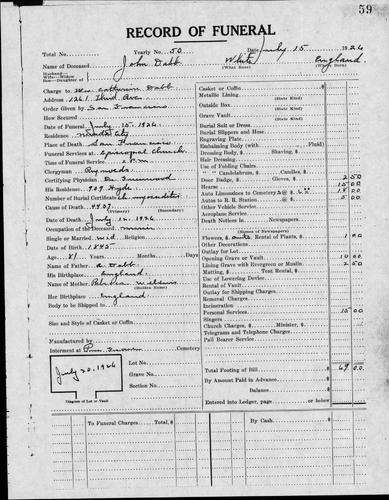 59
RECORD OF FUNERAL
Total No. Yearly No. 50 Date July 15 1926
Name of Deceased John Dabb White England
(What Race) (Where Born)
Husband
Wife
Widow
Son—Daughter of
Charge to Mrs Dabb
Address 1261 Third Ave
Order Given by San Francisco
How Secured
Date of Funeral July 15, 1926
Residence City
Place of Death San Francisco
Funeral Services at Episcopal Church
Time of Funeral Service 2 P.M.
Clergyman Reynolds
Certifying Physician Dr
His Residence 909 Hyde
Number of Burial Certificate
Cause of Death
(Primary) (Secondary)
Date of Death July 12, 1926
Occupation of the Deceased miner
Single or Married Wid Religion
Date of Birth 1845
Age 81 Years, Months, Days
Name of Father Dabb
His Birthplace England
Name of Mother
(Maiden Name)
Her Birthplace England
Body to be Shipped to
Size and Style of Casket or Coffin
Manufactured by
Interment at Cemetery
July 20, 1926
Lot No.
Grave No.
Section No.
Diagram of Lot or Vault
Casket or Coffin
Metallic Lining
(State Kind)
Outside Box
(State Kind)
Grave Vault
(State Kind)
Burial Suit or Dress
Burial Slippers and Hose
Engraving Plate
Embalming Body (with Fluid)
Dressing Body, $ Shaving, $
Hair Dressing
Use of Folding Chairs
" " Candelabrum, $ Candles, $
Door Badge, $ Gloves, $ 2 50
Hearse 15 00
Auto Limousines to Cemetery 3 @ $ 6.00 18 00
Autos to R. R. Station @ $ 5 00
Other Vehicle Service
Aeroplane Service
Death Notices in Newspapers
(Names of Newspapers)
Flowers, $ Rental of Plants, $ 1 00
Other Decorations
Outlay for Lot
Opening Grave or Vault 10 00
Lining Grave with Evergreen or Muslin 2 50
Matting, $ Tent Rental, $
Use of Lowering Device
Rental of Vault
Outlay for Shipping Charges
Removal Charges
Incineration
Personal Services 15 00
Singers
Church Charges, $ Minister, $
Telegrams and Telephone Charges
Pall Bearer Service
Total Footing of Bill $ 69 00
By Amount Paid in Advance
Balance
Entered into Ledger, page or below
To Funeral Charges Total By Cash $